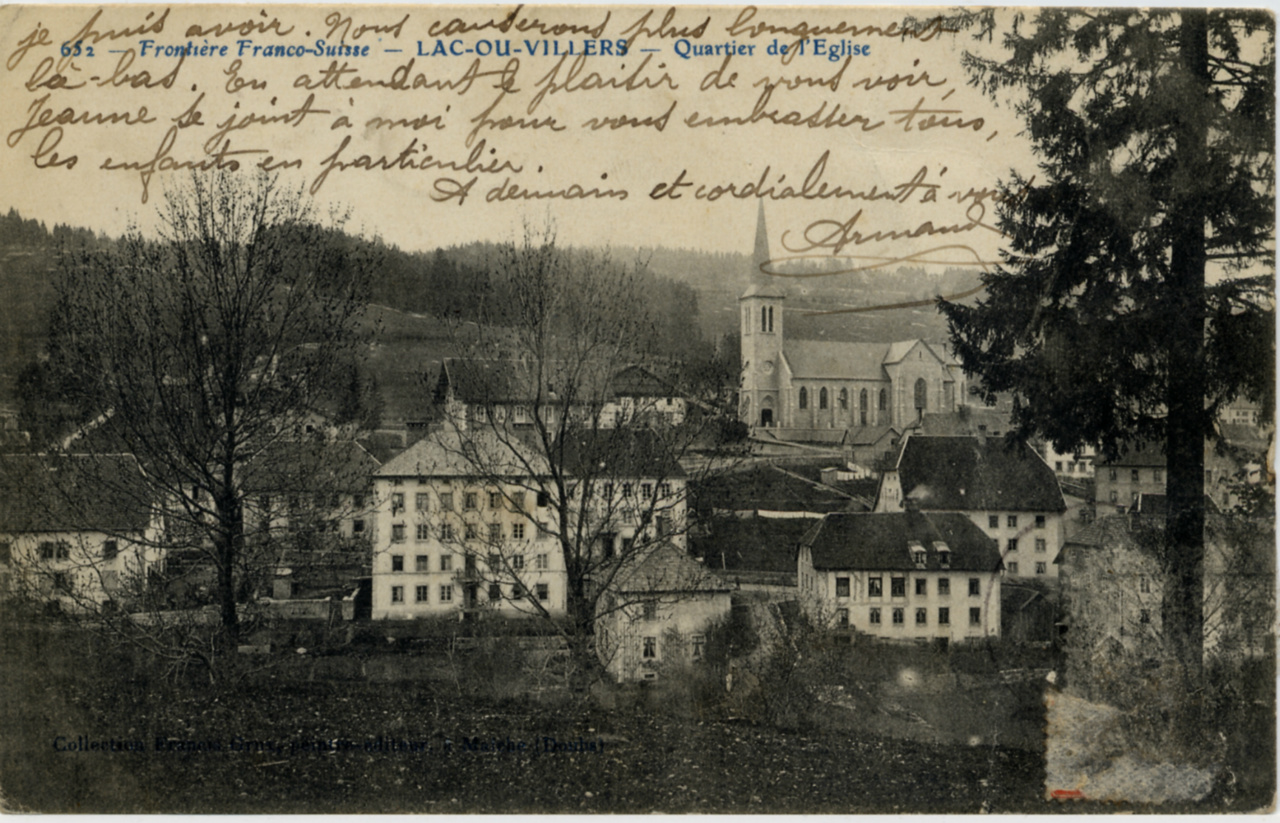 je puis avoir. Nous causerons plus longuement
652 — Frontière Franco-Suisse — LAC-OU-VILLERS — Quartier de l'Eglise
là-bas. En attendant le plaisir de vous voir,
Jeanne se joint à moi pour vous embrasser tous,
les enfants en particulier.
A demain et cordialement à vous
Armand
Collection Francis Orny, peintre-éditeur, à Maîche (Doubs)